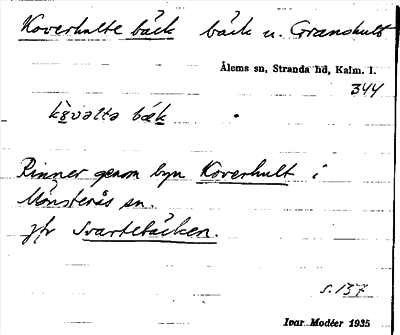 Koverhulte bäck bäck u. Granshult
Ålems sn, Stranda hd, Kalm. l.
344
bäk
Rinner genom byn Koverhult i
Mönsterås sn.
jfr Svartebäcken.
s. 137
Ivar Modéer 1935